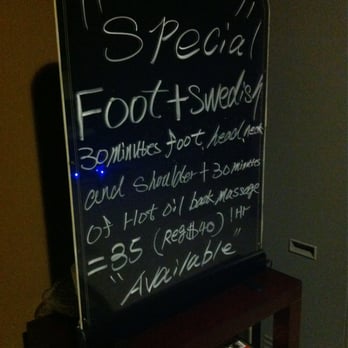 "Special"
Foot+Swedish
30 minutes foot, head, neck
and Shoulder+30 minutes
of Hot oil back massage
=35 (Reg$40) 1Hr
"Available"